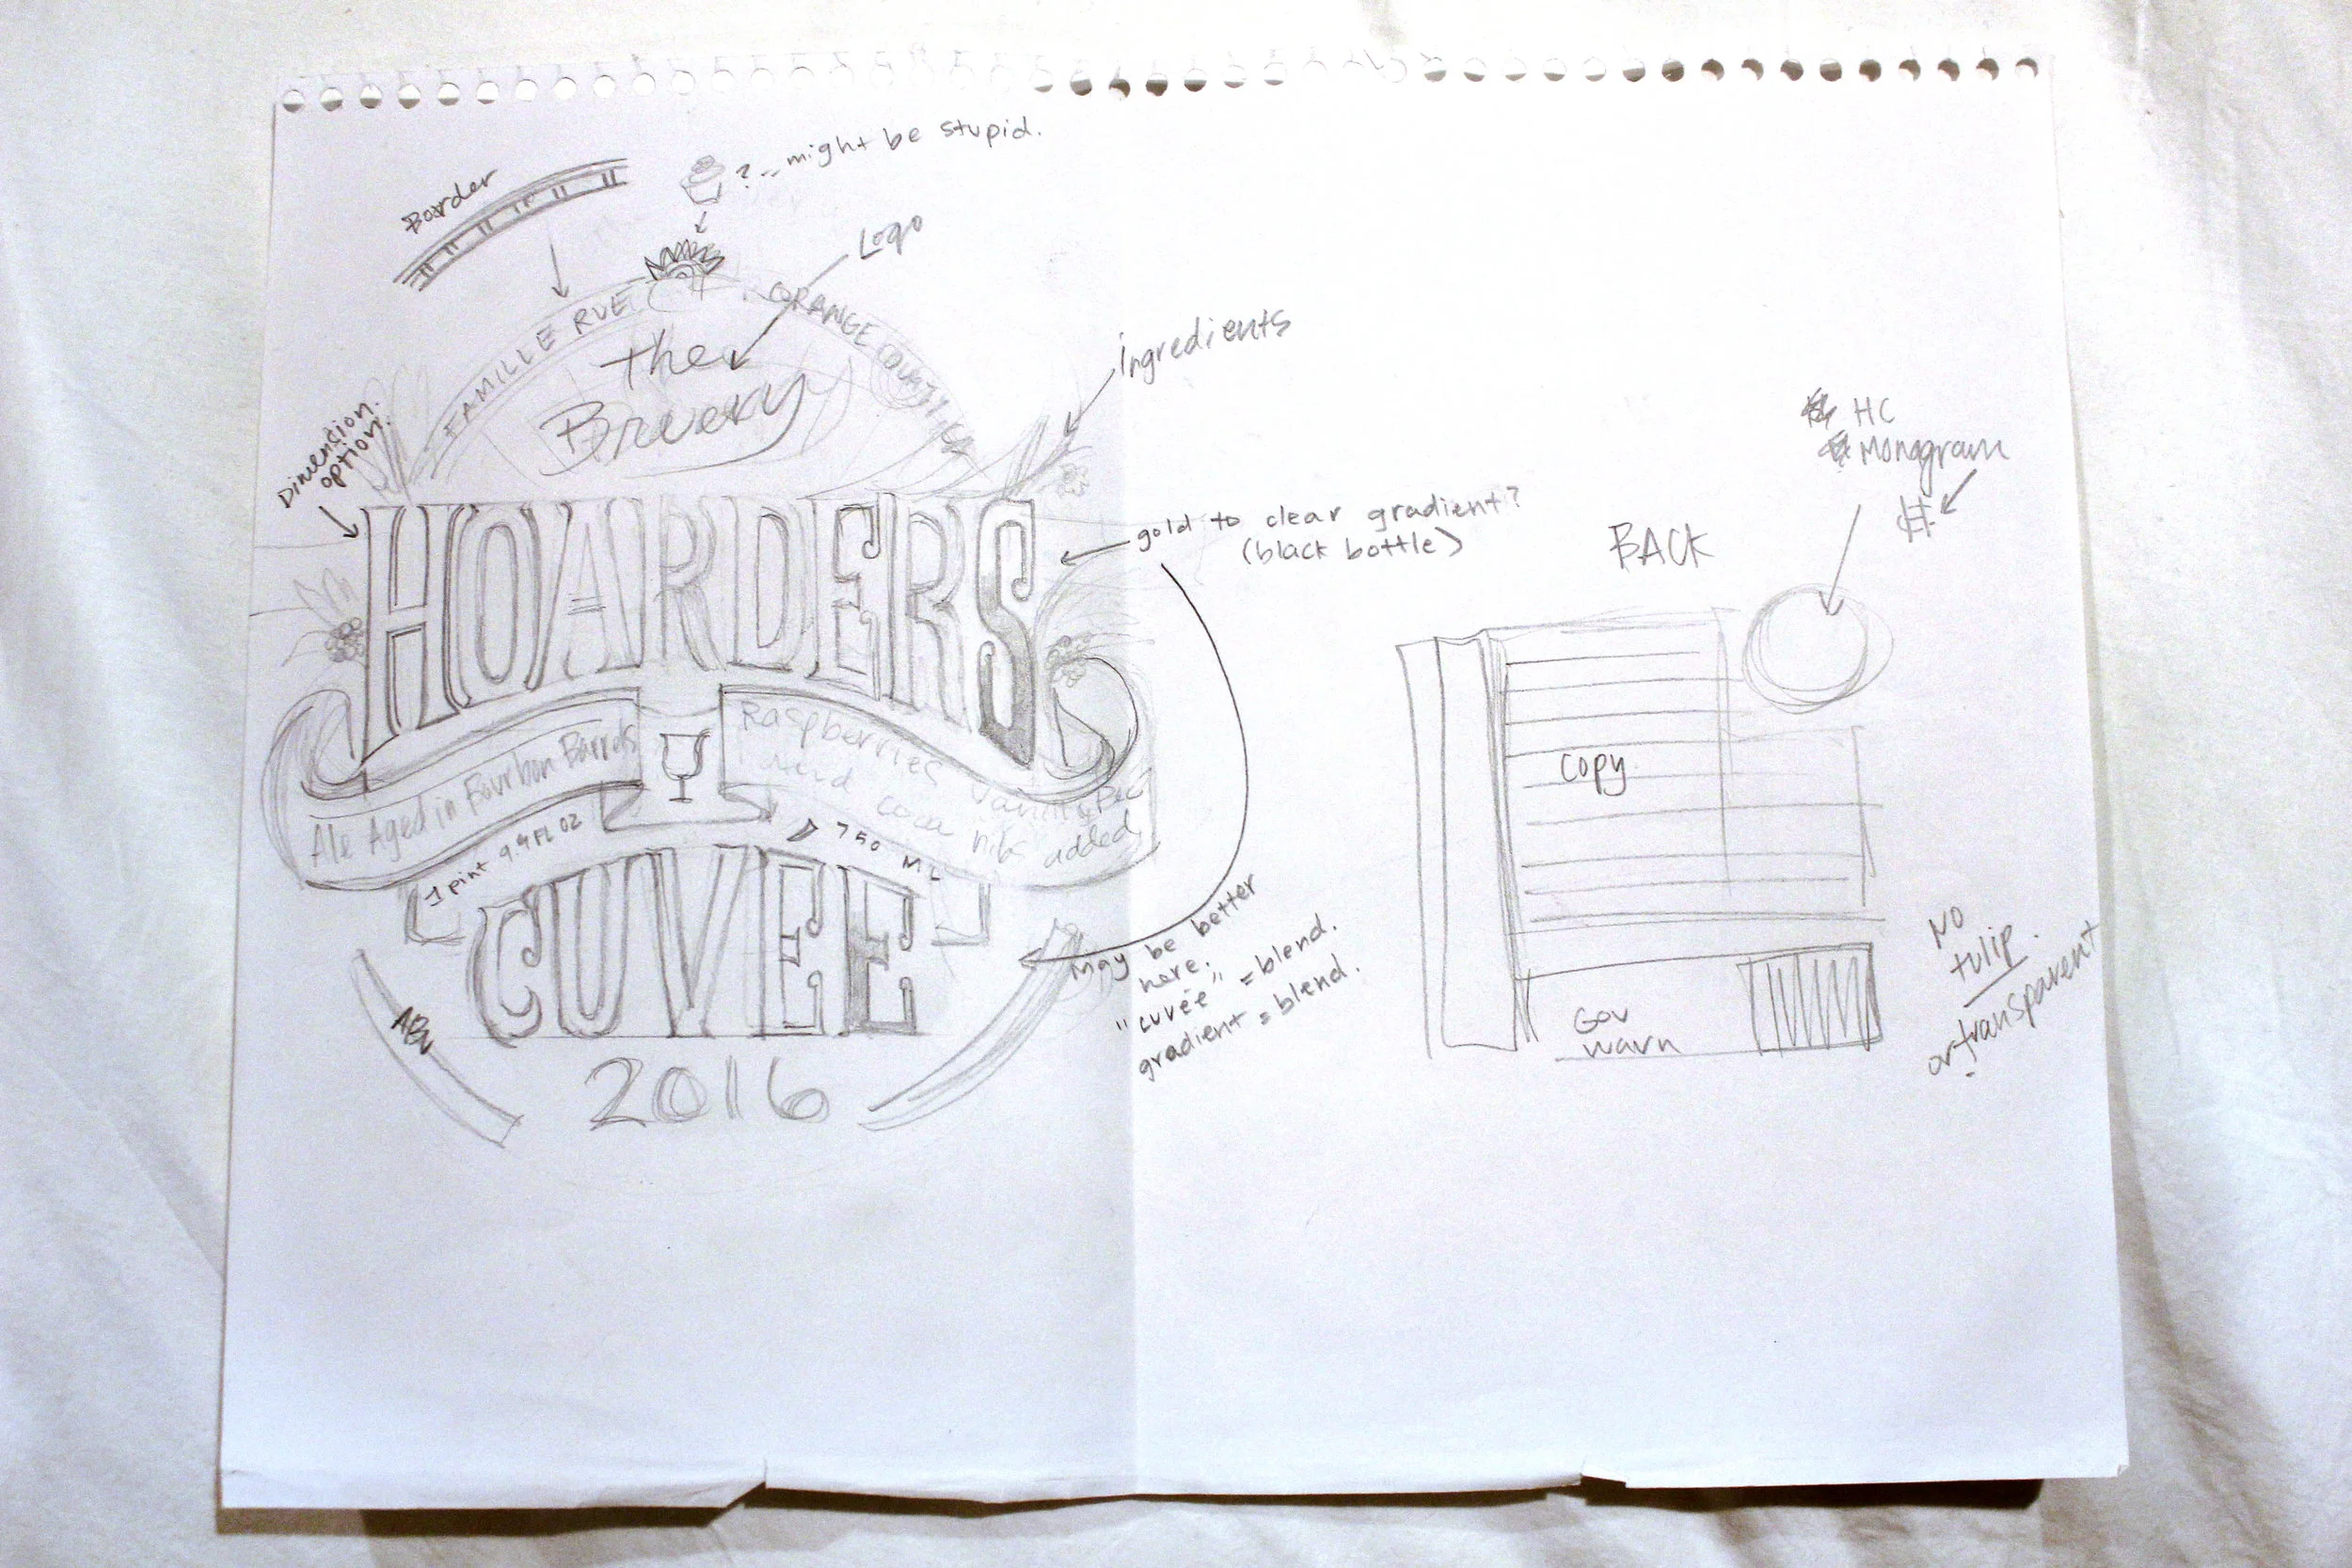 Boarder
? ... might be stupid.
Logo
FAMILLE RUE
ORANGE COUNTY, CA
the
Bruery
ingredients
Dimention
option.
HOARDERS
gold to clear gradient?
(black bottle)
Ale Aged in Bourbon Barrels
Raspberries
and cocoa nibs added
1 pint 9.4 FL OZ
750 ML
CUVEE
may be better
here.
"cuvée" = blend.
gradient = blend.
2016
HC
Monogram
BACK
copy
Gov
warn
NO
tulip.
or transparent